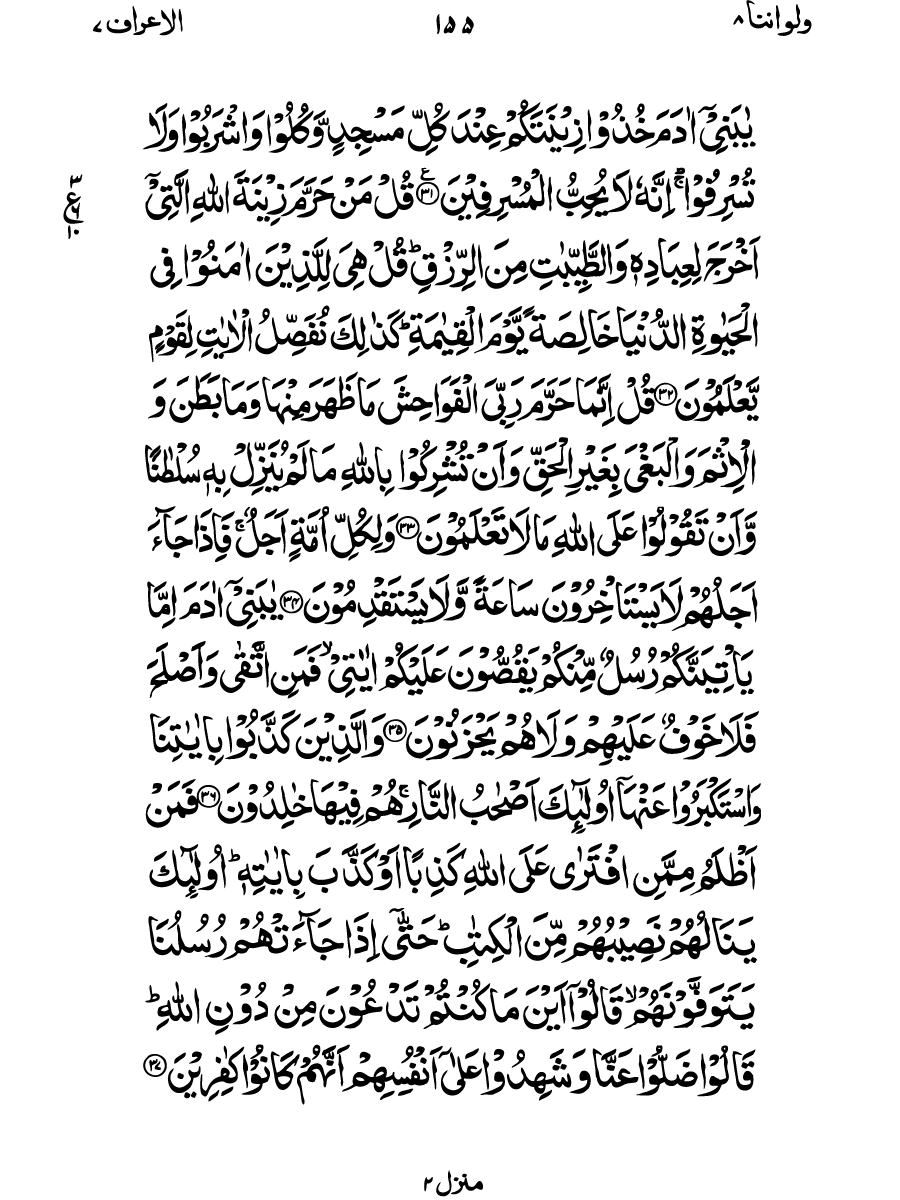 ولواننا ۸ ۱۵۵ الاعراف ۷
يٰبَنِيْٓ اٰدَمَ خُذُوْا زِيْنَتَكُمْ عِنْدَ كُلِّ مَسْجِدٍ وَّكُلُوْا وَاشْرَبُوْا وَلَا
تُسْرِفُوْا ۚ اِنَّهٗ لَا يُحِبُّ الْمُسْرِفِيْنَ ۝۳۱ ع قُلْ مَنْ حَرَّمَ زِيْنَةَ اللّٰهِ الَّتِيْٓ
۳ ع ۹ ۱۰
اَخْرَجَ لِعِبَادِهٖ وَالطَّيِّبٰتِ مِنَ الرِّزْقِ ؕ قُلْ هِيَ لِلَّذِيْنَ اٰمَنُوْا فِي
الْحَيٰوةِ الدُّنْيَا خَالِصَةً يَّوْمَ الْقِيٰمَةِ ؕ كَذٰلِكَ نُفَصِّلُ الْاٰيٰتِ لِقَوْمٍ
يَّعْلَمُوْنَ ۝۳۲ قُلْ اِنَّمَا حَرَّمَ رَبِّيَ الْفَوَاحِشَ مَا ظَهَرَ مِنْهَا وَمَا بَطَنَ وَ
الْاِثْمَ وَالْبَغْيَ بِغَيْرِ الْحَقِّ وَاَنْ تُشْرِكُوْا بِاللّٰهِ مَا لَمْ يُنَزِّلْ بِهٖ سُلْطٰنًا
وَّاَنْ تَقُوْلُوْا عَلَى اللّٰهِ مَا لَا تَعْلَمُوْنَ ۝۳۳ وَلِكُلِّ اُمَّةٍ اَجَلٌ ۚ فَاِذَا جَآءَ
اَجَلُهُمْ لَا يَسْتَاْخِرُوْنَ سَاعَةً وَّلَا يَسْتَقْدِمُوْنَ ۝۳۴ يٰبَنِيْٓ اٰدَمَ اِمَّا
يَاْتِيَنَّكُمْ رُسُلٌ مِّنْكُمْ يَقُصُّوْنَ عَلَيْكُمْ اٰيٰتِيْ ۙ فَمَنِ اتَّقٰى وَاَصْلَحَ
فَلَا خَوْفٌ عَلَيْهِمْ وَلَا هُمْ يَحْزَنُوْنَ ۝۳۵ وَالَّذِيْنَ كَذَّبُوْا بِاٰيٰتِنَا
وَاسْتَكْبَرُوْا عَنْهَآ اُولٰٓئِكَ اَصْحٰبُ النَّارِ ۚ هُمْ فِيْهَا خٰلِدُوْنَ ۝۳۶ فَمَنْ
اَظْلَمُ مِمَّنِ افْتَرٰى عَلَى اللّٰهِ كَذِبًا اَوْ كَذَّبَ بِاٰيٰتِهٖ ؕ اُولٰٓئِكَ
يَنَالُهُمْ نَصِيْبُهُمْ مِّنَ الْكِتٰبِ ؕ حَتّٰٓى اِذَا جَآءَتْهُمْ رُسُلُنَا
يَتَوَفَّوْنَهُمْ ۙ قَالُوْٓا اَيْنَ مَا كُنْتُمْ تَدْعُوْنَ مِنْ دُوْنِ اللّٰهِ ؕ
قَالُوْا ضَلُّوْا عَنَّا وَشَهِدُوْا عَلٰٓى اَنْفُسِهِمْ اَنَّهُمْ كَانُوْا كٰفِرِيْنَ ۝۳۷
منزل ۲